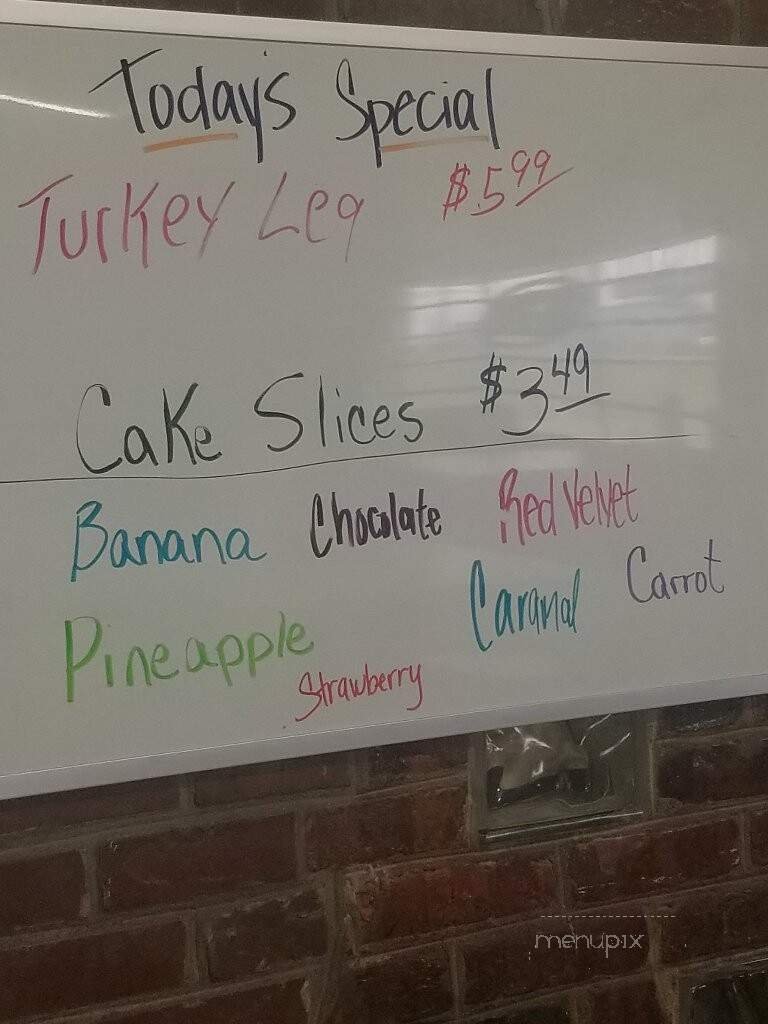 Today's Special
Turkey Leg $5.99
Cake Slices $3.49
Banana Chocolate Red Velvet
Caramal Carrot
Pineapple
Strawberry
menupix